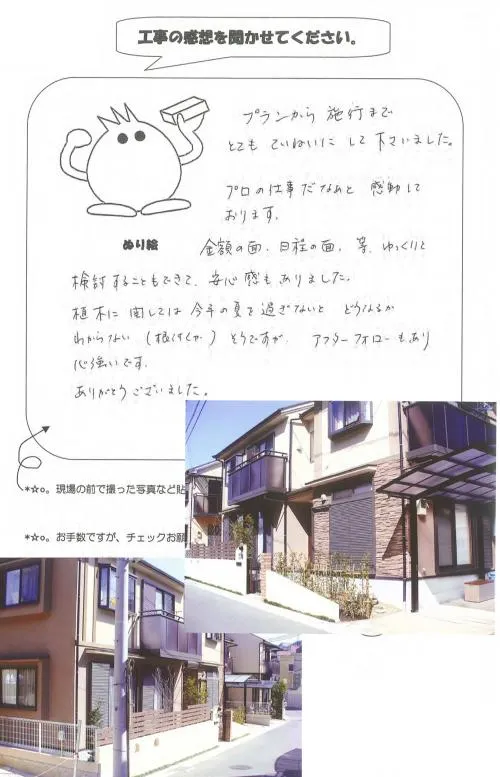 工事の感想を聞かせてください。
プランから 施行まで
とても ていねいに して 下さいました。
プロの仕事だなあと 感動して
おります。
ぬり絵
金額の面、日程の面、等、ゆっくりと
検討することもできて、安心感もありました。
植木に関しては今年の夏を過ぎないと どうなるか
わからない (根付くか?) そうですが、アフターフォローもあり
心強いです。
ありがとうございました。
*☆o。現場の前で撮った写真など貼
*☆o。お手数ですが、チェックお願